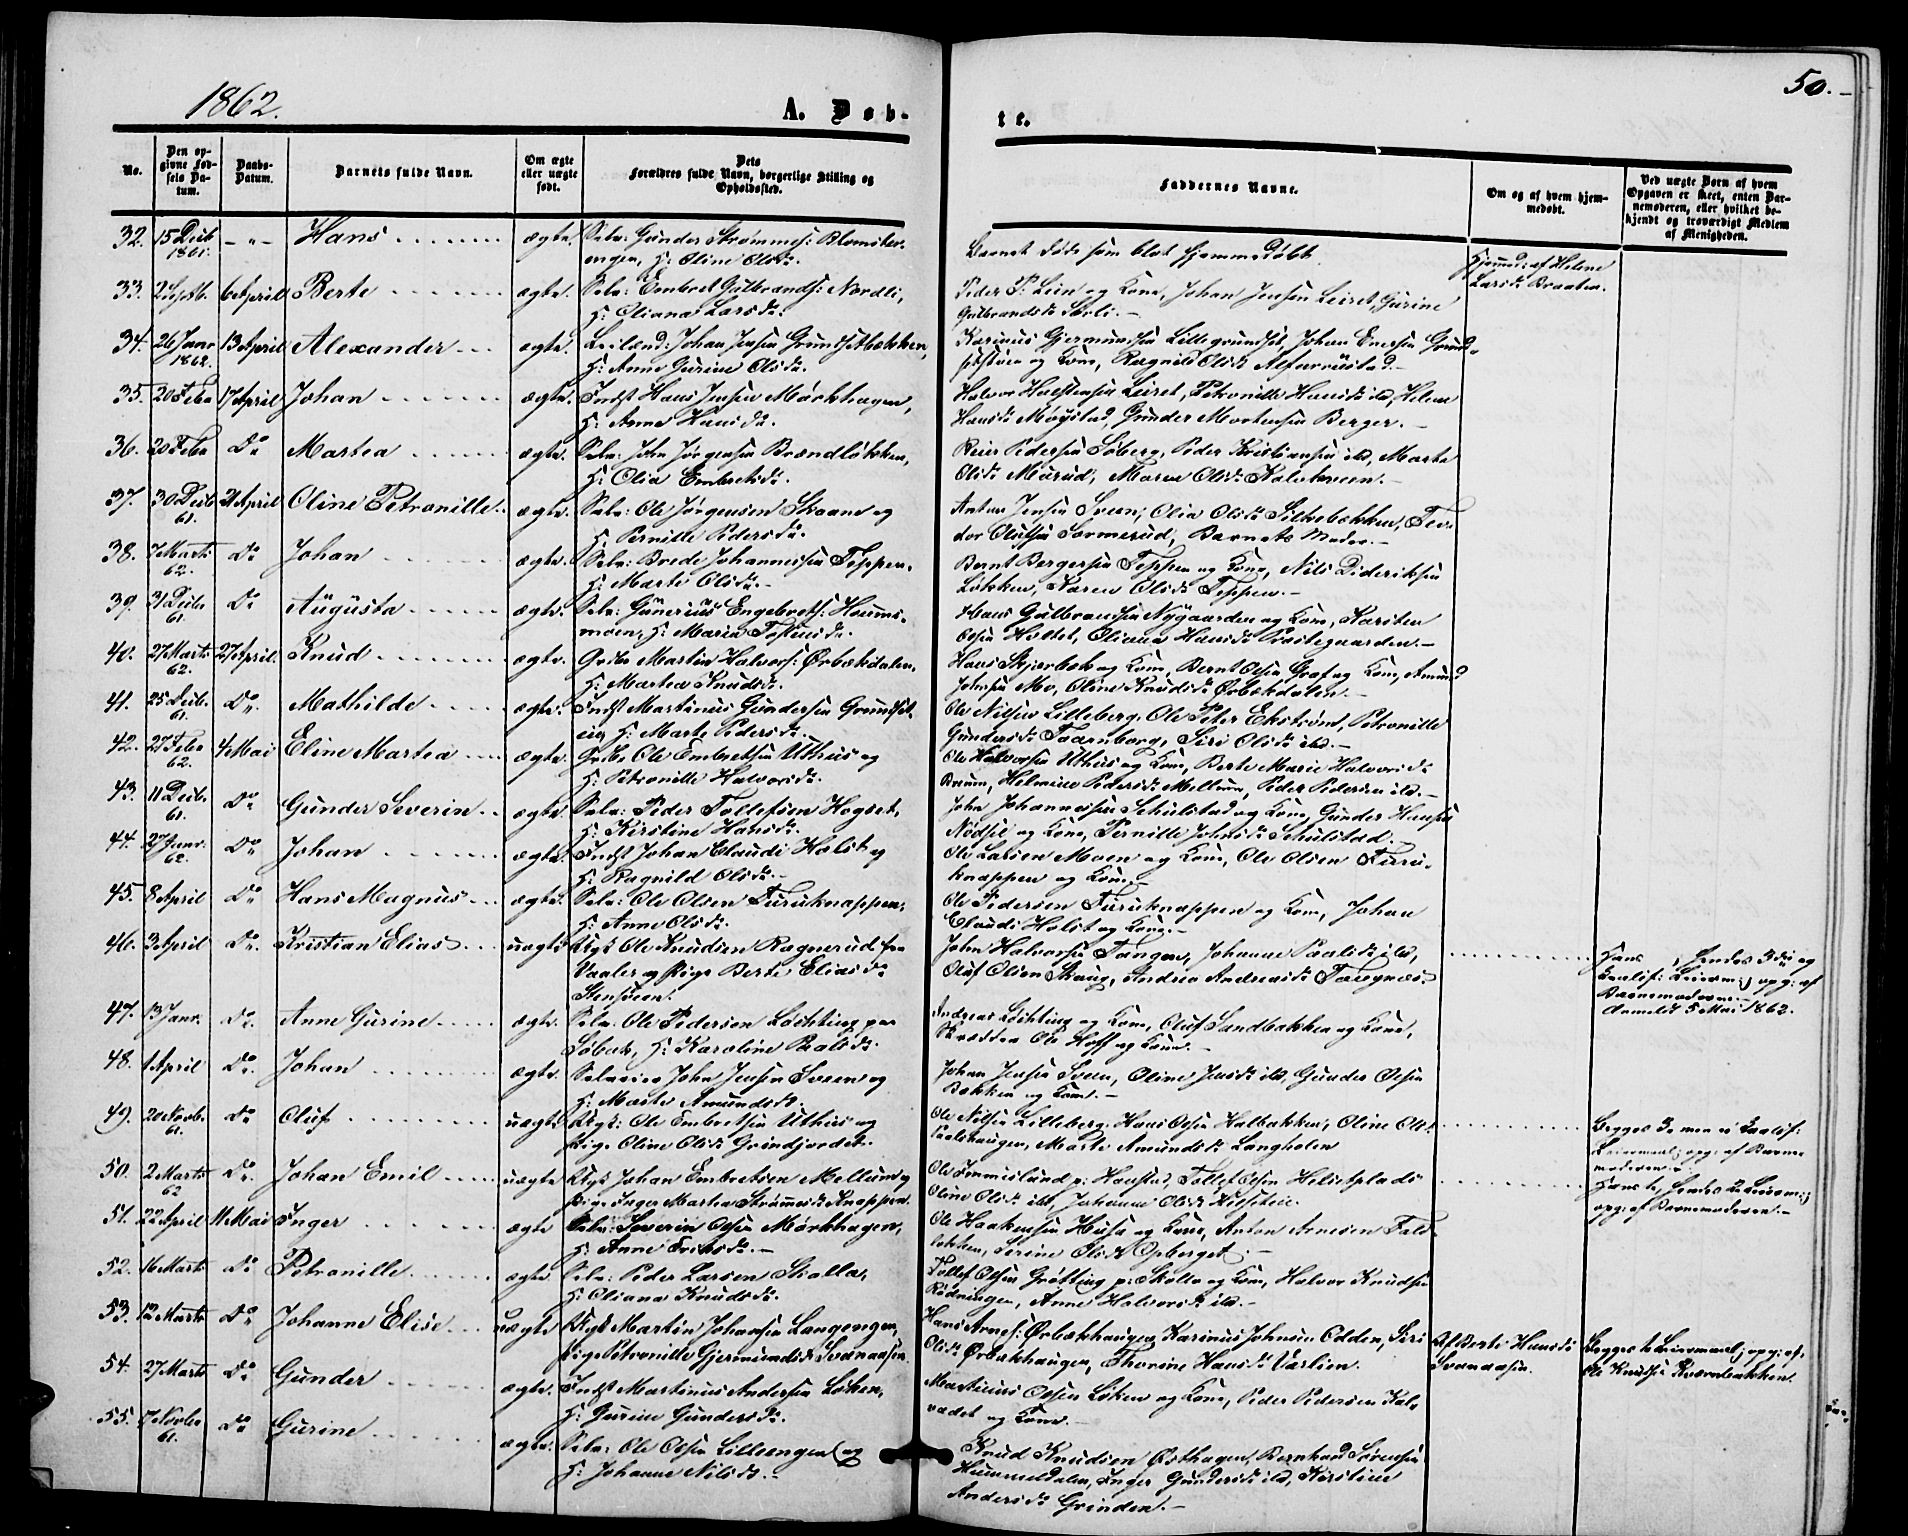 1862.
A. Døb-
te.
50.
No.
Den op-
givne Fød-
sels Da-
tum.
Daabs-
Datum.
Barnets fulde Navn.
Om ægte
eller uægte
født.
Dets
Forældres fulde Navn, borgerlige Stilling og
Opholdssted.
Faddernes Navne.
Om og af hvem hjem-
medøbt.
Ved uægte Børn af hvem
Opgaven er skeet, enten Bar-
nemoderen, eller hvilket be-
kjendt og troværdigt Medlem
af Menigheden.
32. 15 Decb 1861. -"- Hans ægte. Selv: Gunder Strømmes: Blomster-
engen, H: Oline Olsd.
Barnet døde som blot hjemmedøbt
Hjemmd: af Helene
Larsd. Braaten.
33. 6 April Berte ægte. Selv: Embret Gulbrands: Nordli,
H: Oliana Larsd.
Peder P. Lien og Kone, Johan Jensen Leiret, Gurine
Gulbrandsd. Norli.-
34. 26 Janr 1862. 13 April Alexander ægte. Leilænd: Johan Jensen Grundsetbækken,
H: Anne Gurine Olsd.
Karinus Gjermundsen Lillegrundset, Johan Enersen Grund-
setstuen og Kone, Ragnild Olsd.
35. 20 Feb 17 April Johan ægte. Indst Hans Jensen Mørkhagen,
H: Anne Hansd.
Halvor Halstensen Leiret, Petronille Hansd. ibd, Helene
Hansd. Møystad, Gunder Mortensen Berger.-
36. 20 Feb Do Martea ægte. Selv: John Jørgensen Brændløkken,
H: Olia Embretsd.
Reier Pedersen Søberg, Peder Kristiansen ibd, Marte
Olsd. Mørud, Maren Olsd. Kalvehveen.-
37. 30 Decb 61. 21 April Oline Petronille ægte. Selv: Ole Jørgensen Skaane og
H: Pernille Pedersd.
Anton Jensen Sveen, Olia Olsd. Silkebækken, Teo-
dor Olufsen Sormerud, Barnets Moder.-
38. 7 Marts 62. Do Johan ægte. Selv: Brede Johannessen Teppen,
H: Marte Olsd.-
Bernt Bergersen Teppen og Kone, Nils Dideriksen
Løkken, Karen Olsd. Teppen.-
39. 31 Decb 61. Do Augusta ægte. Selv: Gunerius Engebrets: Hamme-
moen, H: Maria Tostensd.
Hans Gulbrandsen Nygaarden og Kone, Karsten
Olsen Holtet, Oliana Hansd. Prestegaarden.-
40. 27 Marts 62. 27 April. Knud ægte. Grbr Martin Halvors: Ørbækdalen,
H: Martea Knudsd.
Hans Skjærbæk og Kone, Bernt Olsen Graf og Kone, Amund
Johnsen Mo, Oline Knudsd. Ørbækdalen.-
41. 25 Decb. 61. Do. Mathilde ægte. Indst Martinus Gundersen Grundset-
eie, H: Marte Pedersd.
Ole Nilsen Lilleberg, Ole Peter Ekstrøm, Petronille
Gundersd. Taarnborg, Siri Olsd. ibd.-
42. 27 Feb 62. 4 Mai Eline Martea ægte. Grbr. Ole Embretsen Uthus og
H: Petronille Halvorsd.
Ole Halvorsen Uthus og Kone, Berte Marie Halvorsd.
Helmine Pedersd. Mellum, Peder Pedersen ibd.-
43. 11 Decb. 61. Do Gunder Severin ægte. Selv: Peder Tollefsen Hogset,
H: Kirstine Hansd.
John Johannessen Schulstad og Kone, Gunder Hansen
Nødset og Kone, Pernille Johnsd. Schulstad.-
44. 27 Janr. 62. Do Johan ægte. Indst Johan Claudi Holst og
H: Ragnild Olsd.-
Ole Larsen Moen og Kone, Ole Olsen Furu-
knappen og Kone.-
45. 8 April Do Hans Magnus ægte. Selv: Ole Olsen Furuknappen,
H: Anne Olsd.
Ole Pedersen Furuknappen og Kone, Johan
Claudi Holst og Kone.-
46. 3 April Do. Kristian Elias uægte Ugk Ole Knudsen Ragnerud fra
Vaaler og Pige Berte Eliasd.
Stensveen.
John Halvorsen Tangen, Johanne Paalsd. ibd,
Oluf Olsen Skaug, Andrea Andreasd. Taugnæs.
Hans, hendes 3die og
Leierm; opg: af
Barnemoderen.-
Anmeldt 5 Mai 1862.
47. 13 Janr. Do. Anne Gurine ægte. Selv: Ole Pedersen Løchting paa
Søbak, H: Karoline Paalsd.
Andreas Løchting og Kone, Oluf Sandbakken og Kone,
Skrædder Ole Hoff og Kone.-
48. 1 April Do. Johan ægte. Selveier John Jensen Sveen og
H: Marte Amundsd.
Johan Jensen Sveen, Oline Jensd. ibd, Gunder Olsen
Bakken og Kone.-
49. 20 Novb. 61. Do Oluf uægte Ugk: Ole Embretsen Uthus og
Pige Oline Olsd. Grindjordet.
Ole Nilsen Lilleberg, Hans Olsen Halbakken, Oline Ols-
Paalshaugen, Marte Amundsd. Langholen
Begges
Leiermaal; opg: af Barne-
moderen.-
50. 2 Marts 62 Do. Johan Emil uægte Ugk Johan Embretsen Mellum og
Pige Inger Marthea Strømmesd. Knappen.
Ole Immislund p: Haastad, Tollef Olsen
Oline Olsd. ibd, Johanne Olsd.
Hans 1ste, hendes 2 Leierm;
opg: af Barnemoderen.-
51. 22 April 11 Mai Inger ægte Selv: Severin Olsen Mørkhagen,
H: Anne Eriksd.-
Ole Haakensen Husa og Kone, Anton Arnesen Fald-
løkken, Serine Olsd. Opberget.-
52. 16 Marts Do Petronille ægte Selv: Peder Larsen Skalla,
H: Oliana Knudsd.
Tollef Olsen Grøtting p: Skalla og Kone, Halvor Knudsen
Rødningen, Anne Halvorsd. ibd.-
53. 12 Marts Do Johanne Elise uægte Ugk Martin Johansen Langengen,
Pige Petronille Gjermundsd. Svenaasen
Hans Arnes: Ørbækhaugen, Karinus Johnsen Odden, Siri
Olsd. Ørbækhaugen, Thorine Hansd. Varlien.
Af Berte Hansd.
Svenaasen.
Begges 1 Leiermaal; opg: af
Ole Knudsen Kværnbækken.
54. 27 Marts Do Gunder ægte. Indst Martinus Andersen Løken,
H: Gurine Gundersd.
Martinus Olsen Løken og Kone, Peder Pedersen Kal-
vædet og Kone.-
55. 7 Novbr 61. Do Gurine ægte. Selv: Ole Olsen Lilleengen og
H: Johanne Nilsd.-
Knud Knudsen Østhagen, Bernhard Sørensen
Hummeldalen, Inger Gundersd. ibd, Kirstine
Andersd. Grinden.-